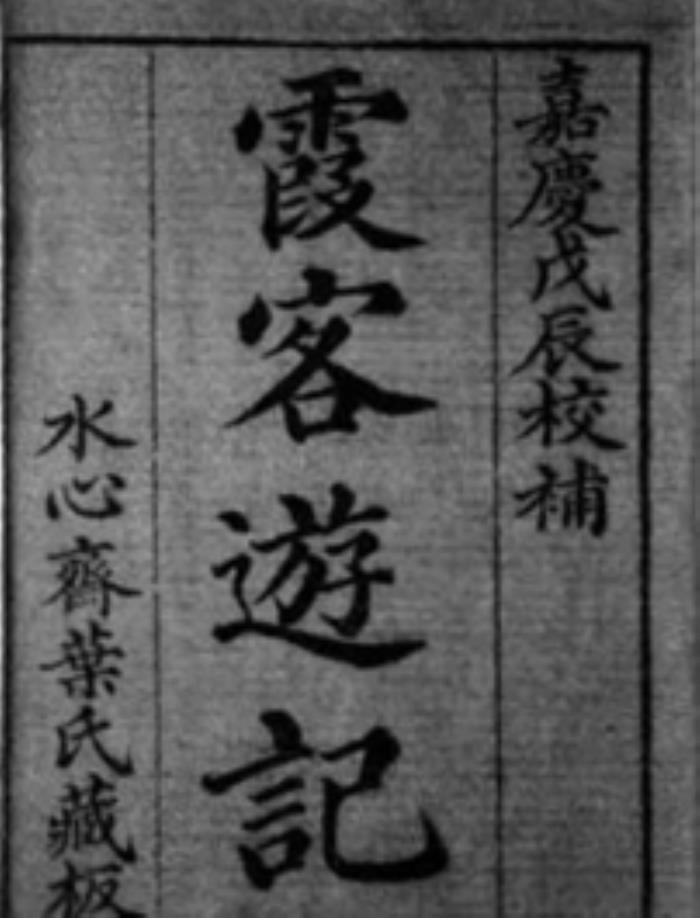 嘉慶戊辰校補
霞客遊記
水心齋葉氏藏板